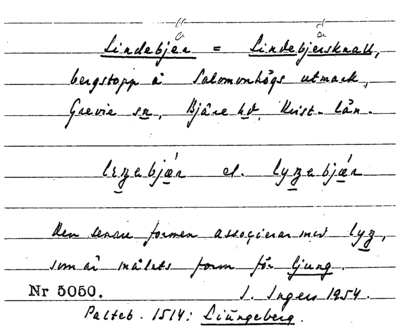 Lindebjär = Lindebjersknall,
bergstopp å Salomonhögs utmark,
Grevie sn, Bjäre hd, Krist. län.
el.
Den senare formen associerar med
som är målets form för ljung.
Nr 5050. I. Ingers 1954.
Palteb. 1514: Liüngeberg.